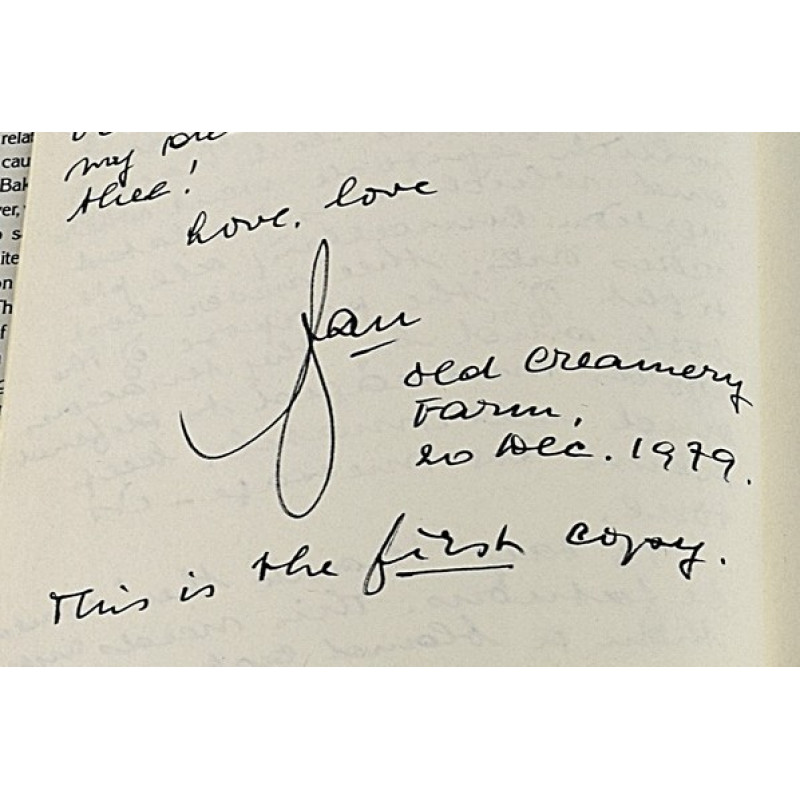 my
thee!
Love, love
Jan
Old Creamery
Farm,
20 Dec. 1979.
This is the first copy.
rela
cau
Bak
ver,
s
ite
on
Th
f